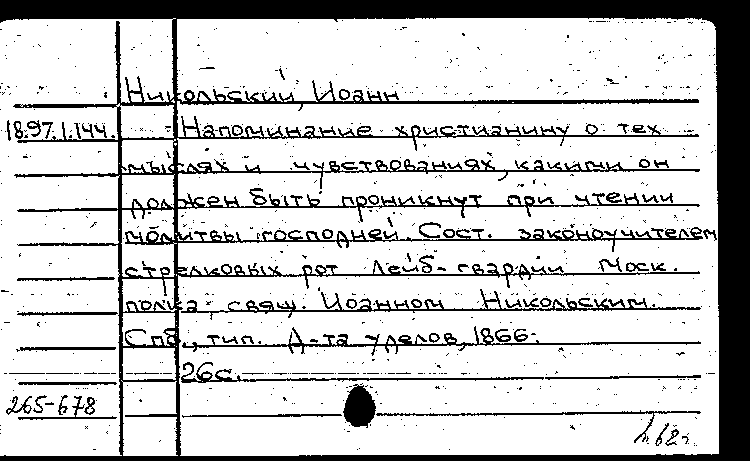 Никольский, Иоанн
18.97.1.144.
Напоминание христианину о тех
мыслях и чувствованиях, какими он
должен быть проникнут при чтении
молитвы господней. Сост. законоучителем
стрелковых рот Лейб-гвардии Моск.
полка, свящ. Иоанном Никольским.
Спб., тип. Д-та уделов, 1866.
26с.
265-678